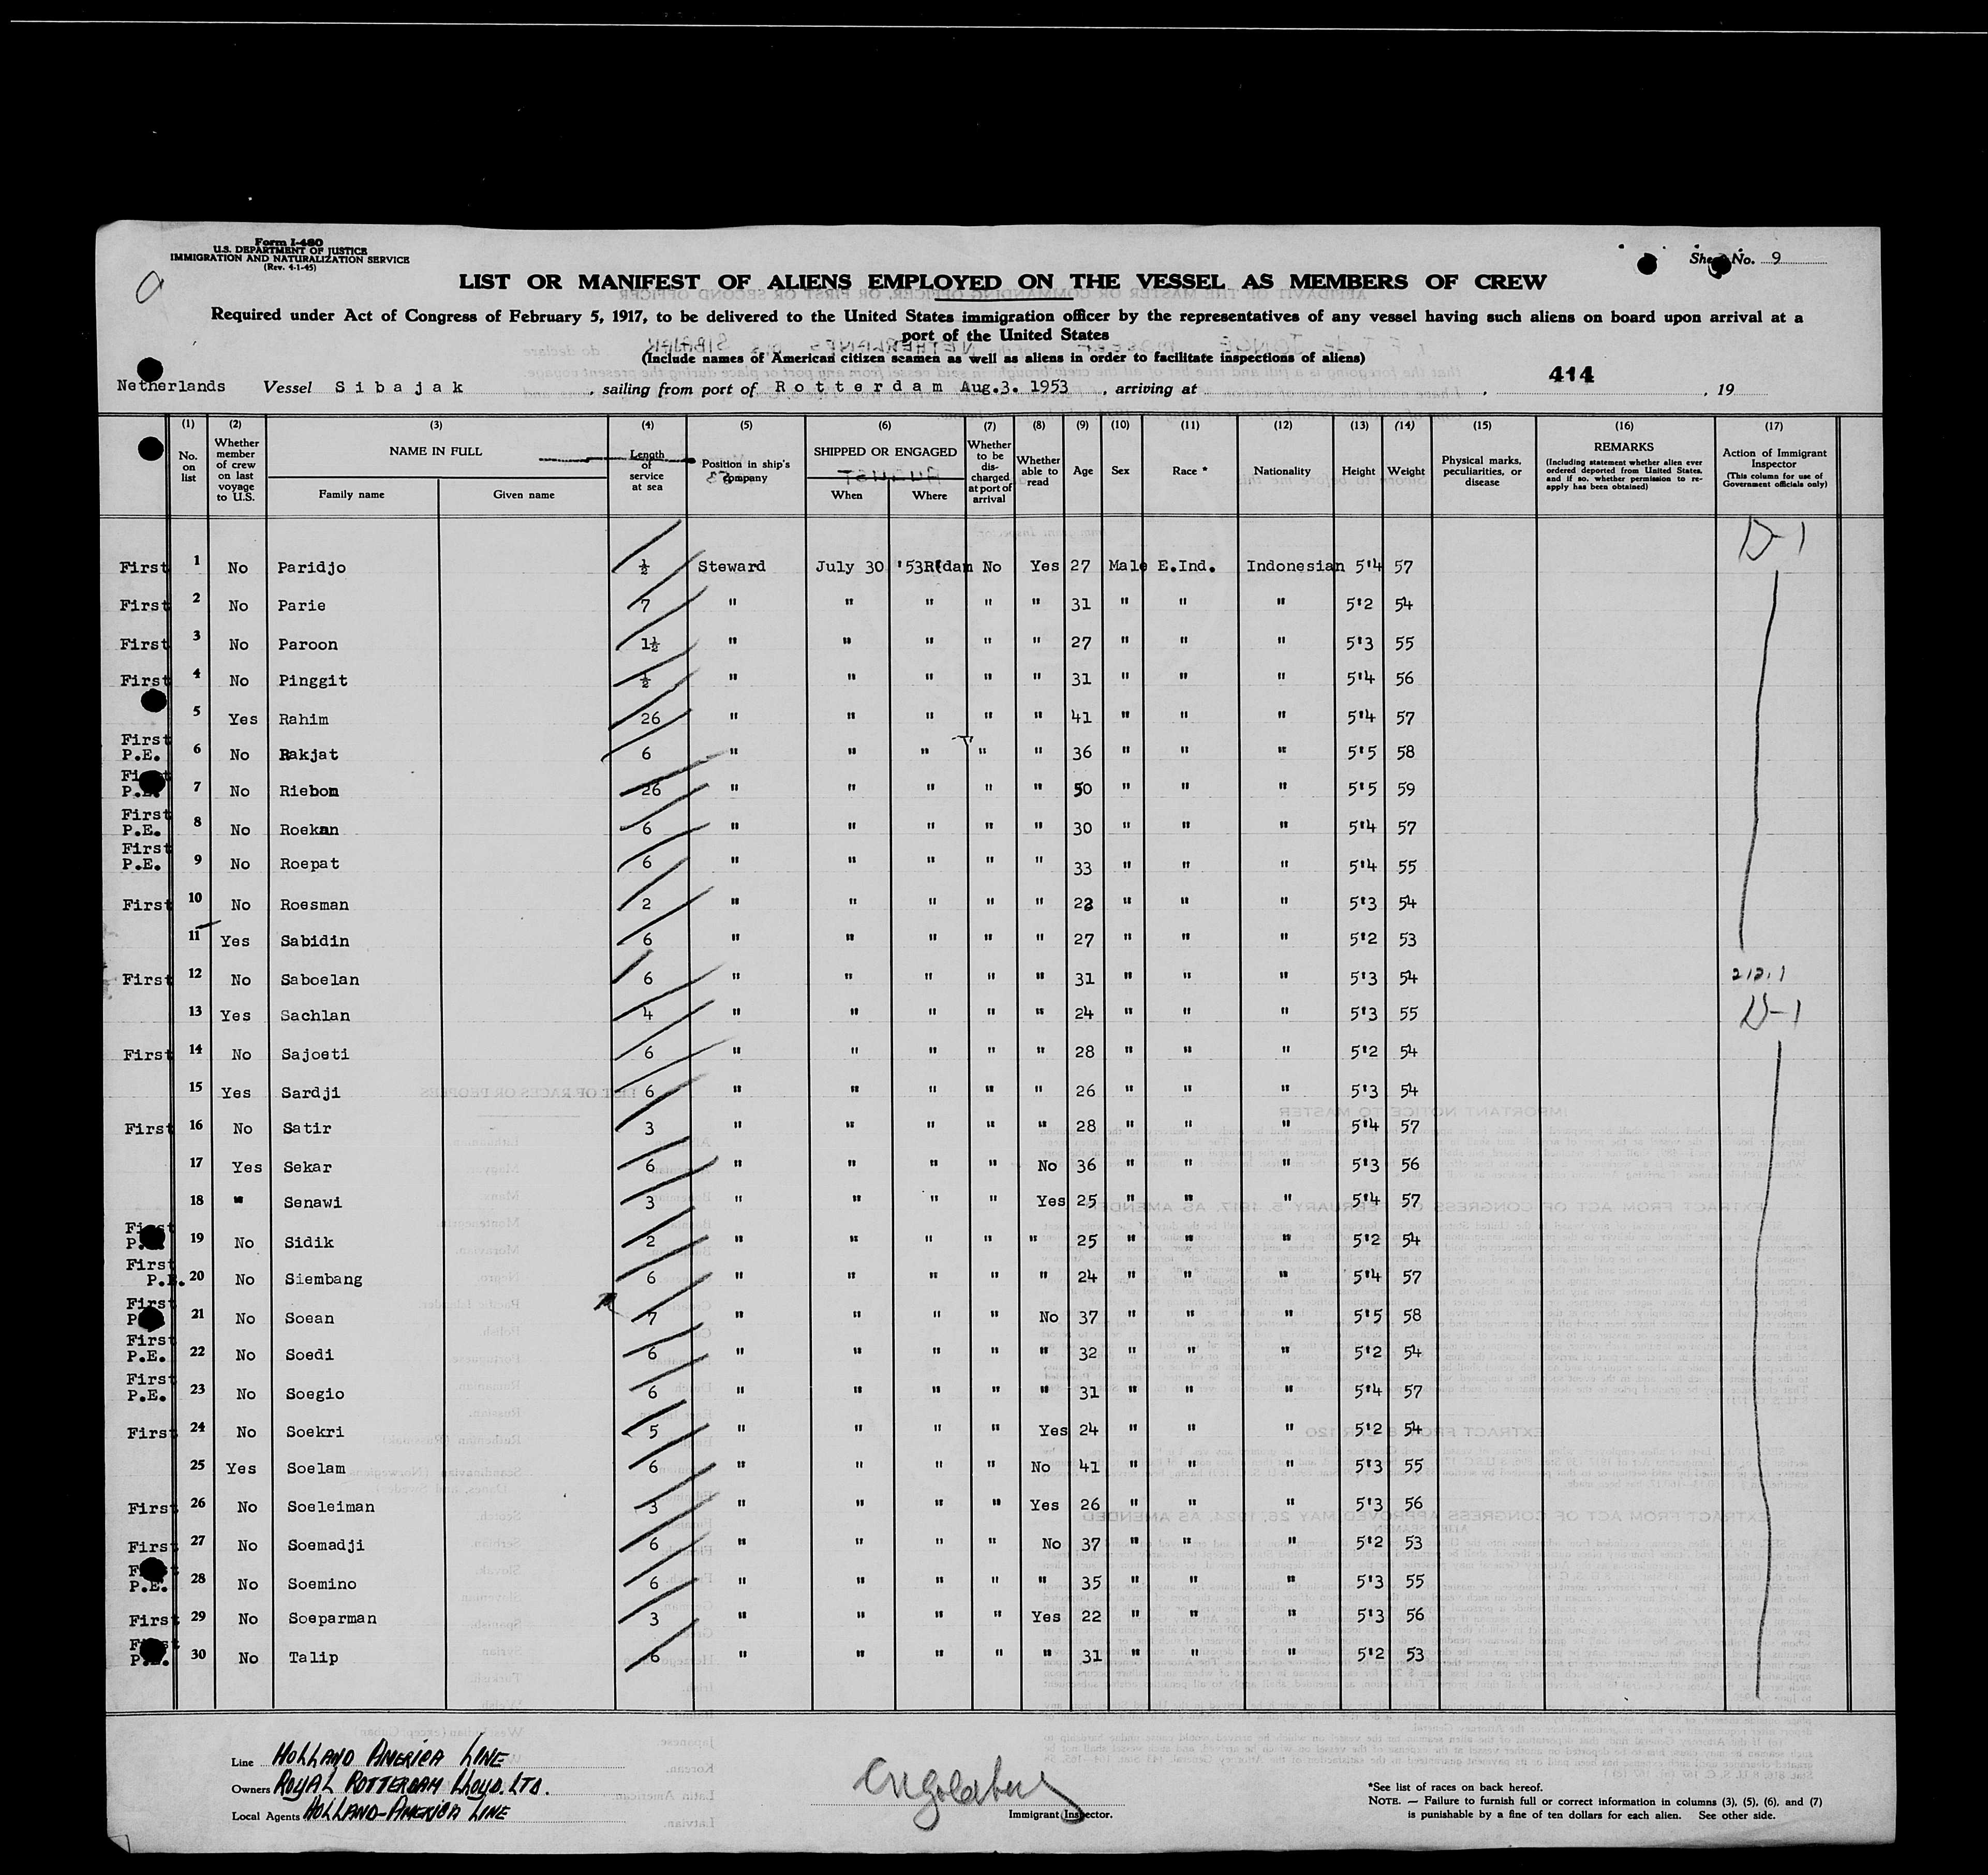 Form I-480
U.S. DEPARTMENT OF JUSTICE
IMMIGRATION AND NATURALIZATION SERVICE
(Rev. 4-1-45)
Sheet No. 9
LIST OR MANIFEST OF ALIENS EMPLOYED ON THE VESSEL AS MEMBERS OF CREW
Required under Act of Congress of February 5, 1917, to be delivered to the United States immigration officer by the representatives of any vessel having such aliens on board upon arrival at a
port of the United States
(Include names of American citizen seamen as well as aliens in order to facilitate inspections of aliens)
414
Netherlands Vessel Sibajak, sailing from port of Rotterdam Aug.3. 1953, arriving at , , 19
(1) (2) (3) (4) (5) (6) (7) (8) (9) (10) (11) (12) (13) (14) (15) (16) (17)
No. on list
Whether member of crew on last voyage to U.S.
NAME IN FULL
Family name Given name
Length of service at sea
Position in ship's company
SHIPPED OR ENGAGED
When Where
Whether to be discharged at port of arrival
Whether able to read
Age
Sex
Race *
Nationality
Height
Weight
Physical marks, peculiarities, or disease
REMARKS
(Including statement whether alien ever ordered deported from United States, and if so, whether permission to reapply has been obtained)
Action of Immigrant Inspector
(This column for use of Government officials only)
D-1
First 1 No Paridjo ½ Steward July 30 '53 R'dam No Yes 27 Male E.Ind. Indonesian 5'4 57
First 2 No Parie 7 " " " " " 31 " " " 5'2 54
First 3 No Paroon 1½ " " " " " 27 " " " 5'3 55
First 4 No Pinggit ½ " " " " " 31 " " " 5'4 56
5 Yes Rahim 26 " " " " " 41 " " " 5'4 57
First P.E. 6 No Rakjat 6 " " " " " 36 " " " 5'5 58
First P.E. 7 No Riebon 26 " " " " " 50 " " " 5'5 59
First P.E. 8 No Roekan 6 " " " " " 30 " " " 5'4 57
First P.E. 9 No Roepat 6 " " " " " 33 " " " 5'4 55
First 10 No Roesman 2 " " " " " 23 " " " 5'3 54
11 Yes Sabidin 6 " " " " " 27 " " " 5'2 53
First 12 No Saboelan 6 " " " " " 31 " " " 5'3 54
13 Yes Sachlan 4 " " " " " 24 " " " 5'3 55 D-1
First 14 No Sajoeti 6 " " " " " 28 " " " 5'2 54
15 Yes Sardji 6 " " " " " 26 " " " 5'3 54
First 16 No Satir 3 " " " " " 28 " " " 5'4 57
17 Yes Sekar 6 " " " " No 36 " " " 5'3 56
18 " Senawi 3 " " " " Yes 25 " " " 5'4 57
First P.E. 19 No Sidik 2 " " " " " 25 " " " 5'2 54
First P.E. 20 No Siembang 6 " " " " " 24 " " " 5'4 57
First P.E. 21 No Soean 7 " " " " No 37 " " " 5'5 58
First P.E. 22 No Soedi 6 " " " " " 32 " " " 5'2 54
First P.E. 23 No Soegio 6 " " " " " 31 " " " 5'4 57
First 24 No Soekri 5 " " " " Yes 24 " " " 5'2 54
25 Yes Soelam 6 " " " " No 41 " " " 5'3 55
First 26 No Soeleiman 3 " " " " Yes 26 " " " 5'3 56
First 27 No Soemadji 6 " " " " No 37 " " " 5'2 53
First P.E. 28 No Soemino 6 " " " " " 35 " " " 5'3 55
First 29 No Soeparman 3 " " " " Yes 22 " " " 5'3 56
First P.E. 30 No Talip 6 " " " " " 31 " " " 5'2 53
Line HOLLAND AMERICA LINE
Owners ROYAL ROTTERDAM LLOYD. LTD.
Local Agents HOLLAND-AMERICA LINE
Immigrant Inspector.
*See list of races on back hereof.
NOTE. — Failure to furnish full or correct information in columns (3), (5), (6), and (7)
is punishable by a fine of ten dollars for each alien. See other side.